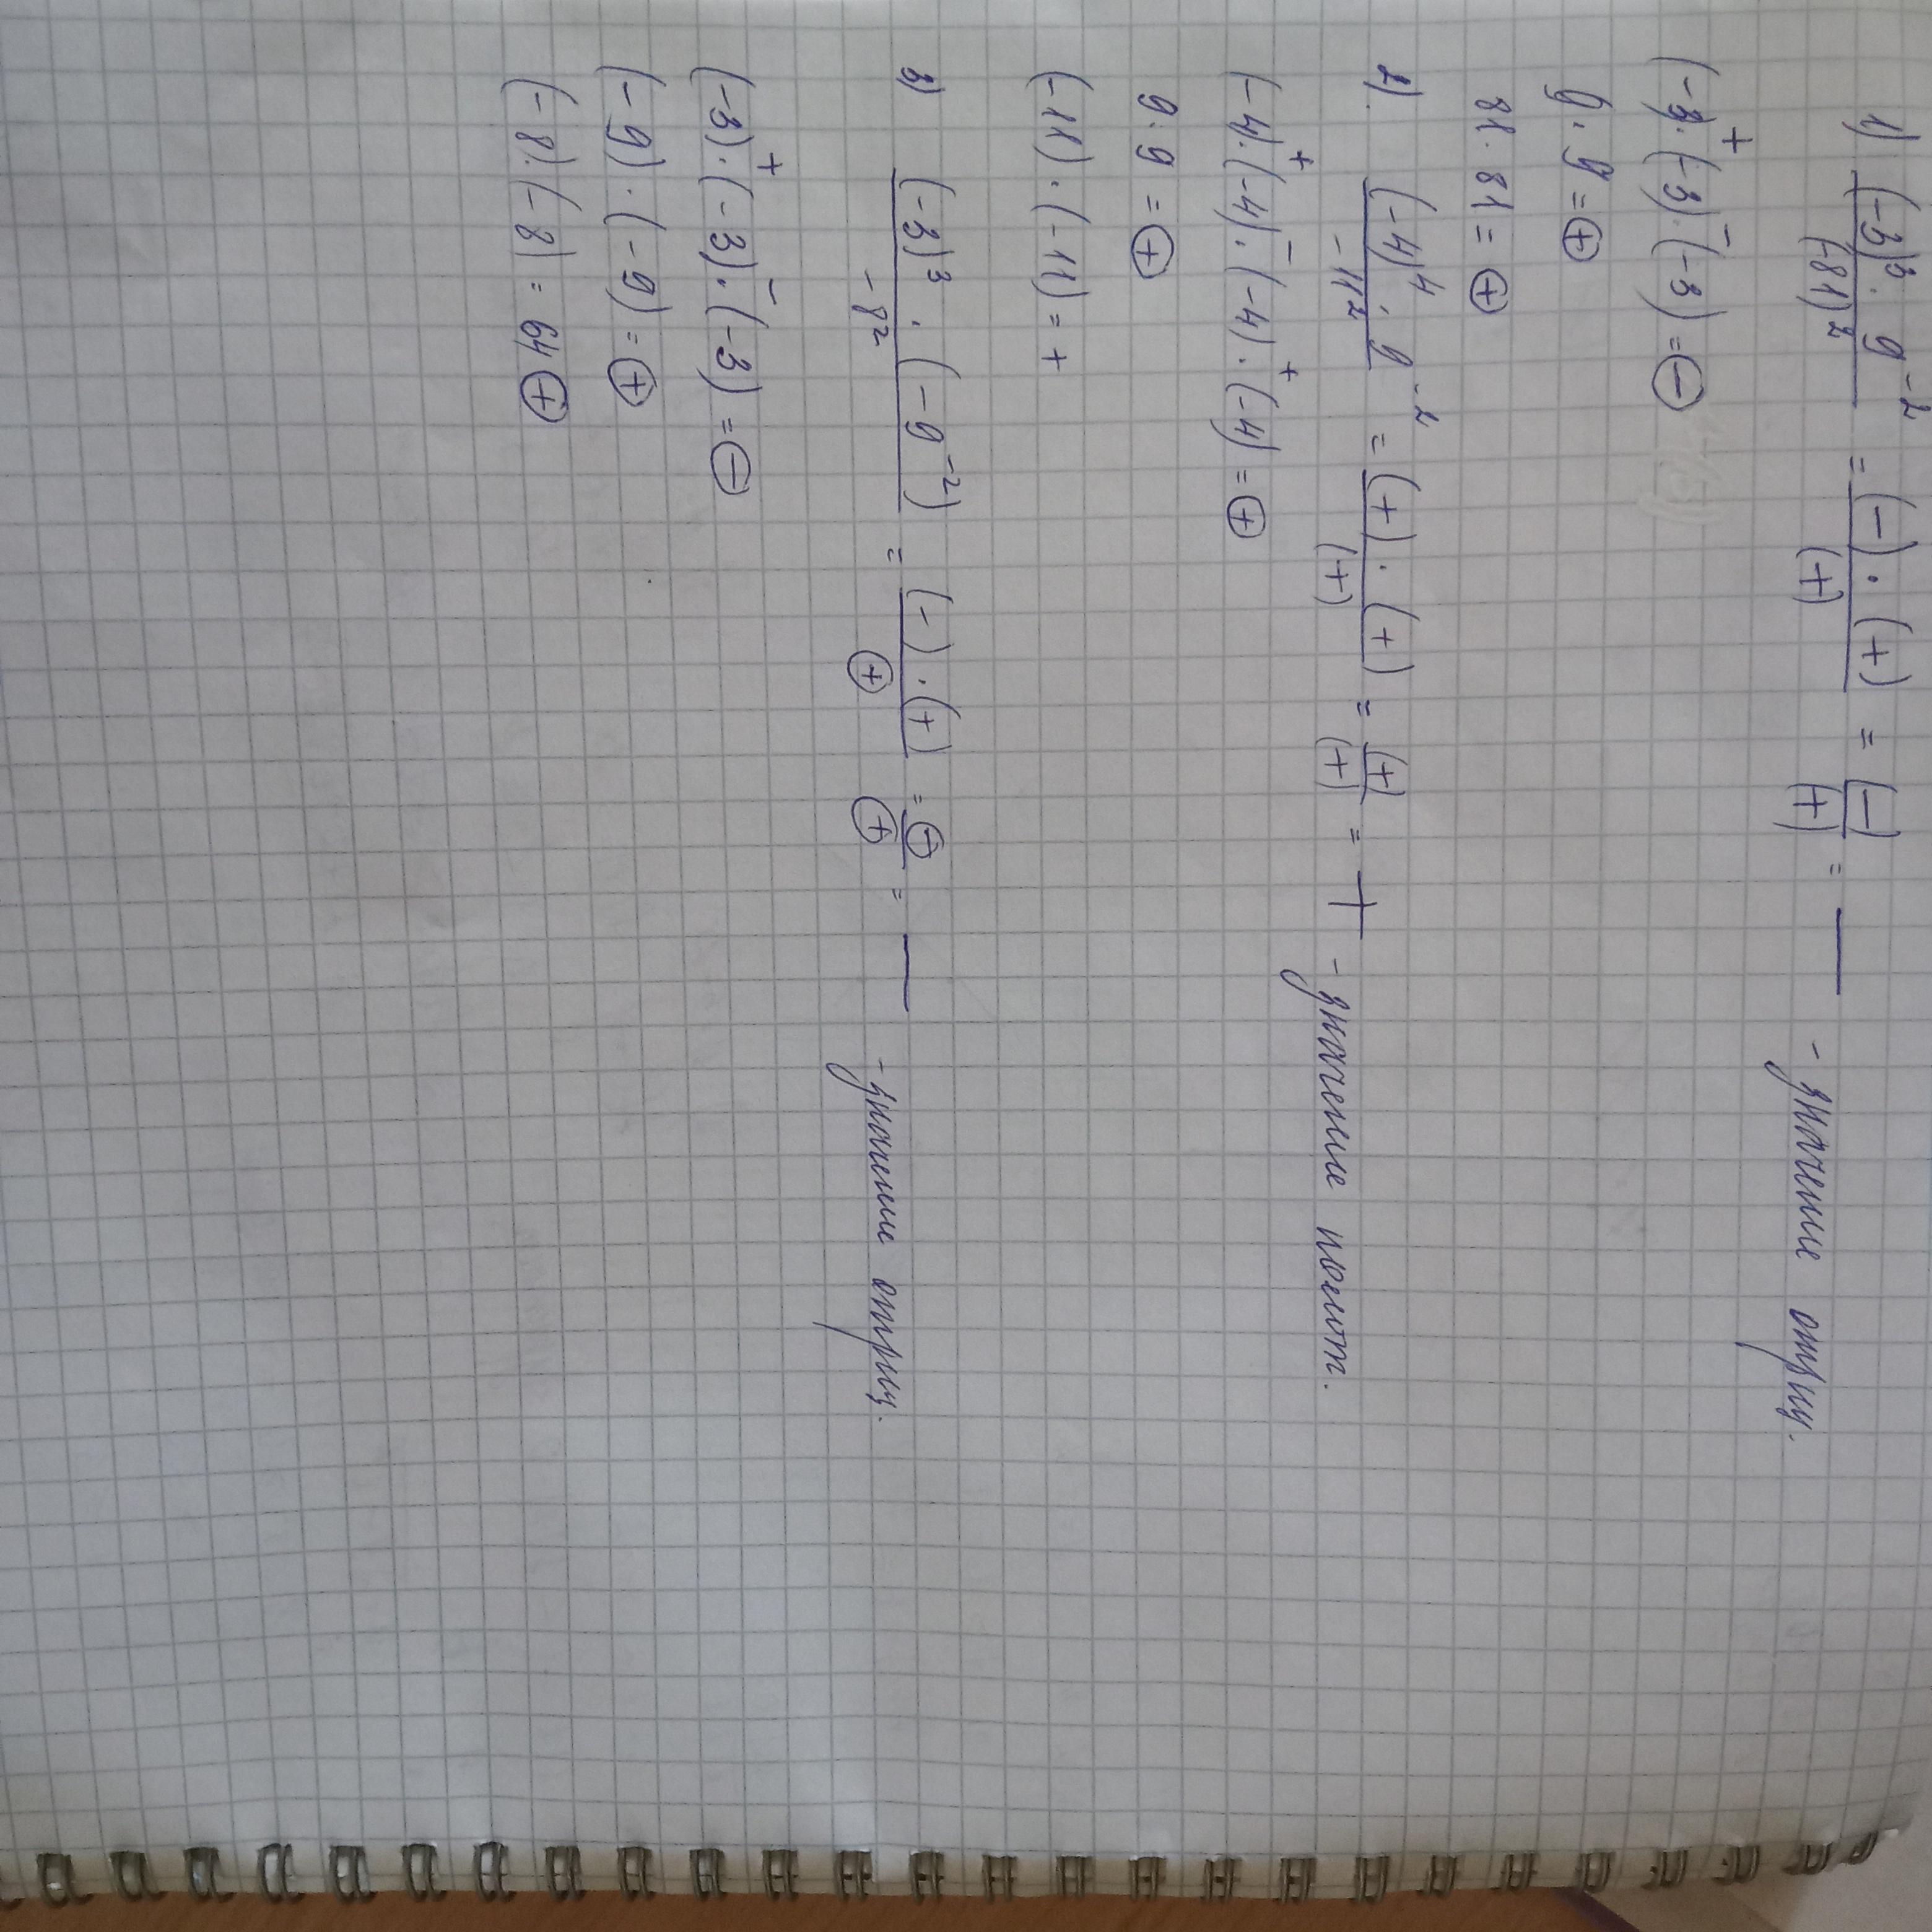 1) (-3)³ · 9⁻² / (-81)² = (-) · (+) / (+) = (-) / (+) = — - значение отриц.
(-3) · (-3) · (-3) = ⊖
+ -
9 · 9 = ⊕
81 · 81 = ⊕
2) (-4)⁴ · 9⁻² / -11² = (+) · (+) / (+) = (+) / (+) = + - значение полит.
(-4) · (-4) · (-4) · (-4) = ⊕
+ - +
9 · 9 = ⊕
(-11) · (-11) = +
3) (-3)³ · (-9⁻²) / -8² = (-) · (+) / ⊕ = ⊖ / ⊕ = — - значение отриц.
(-3) · (-3) · (-3) = ⊖
+ -
(-9) · (-9) = ⊕
(-8) (-8) = 64 ⊕